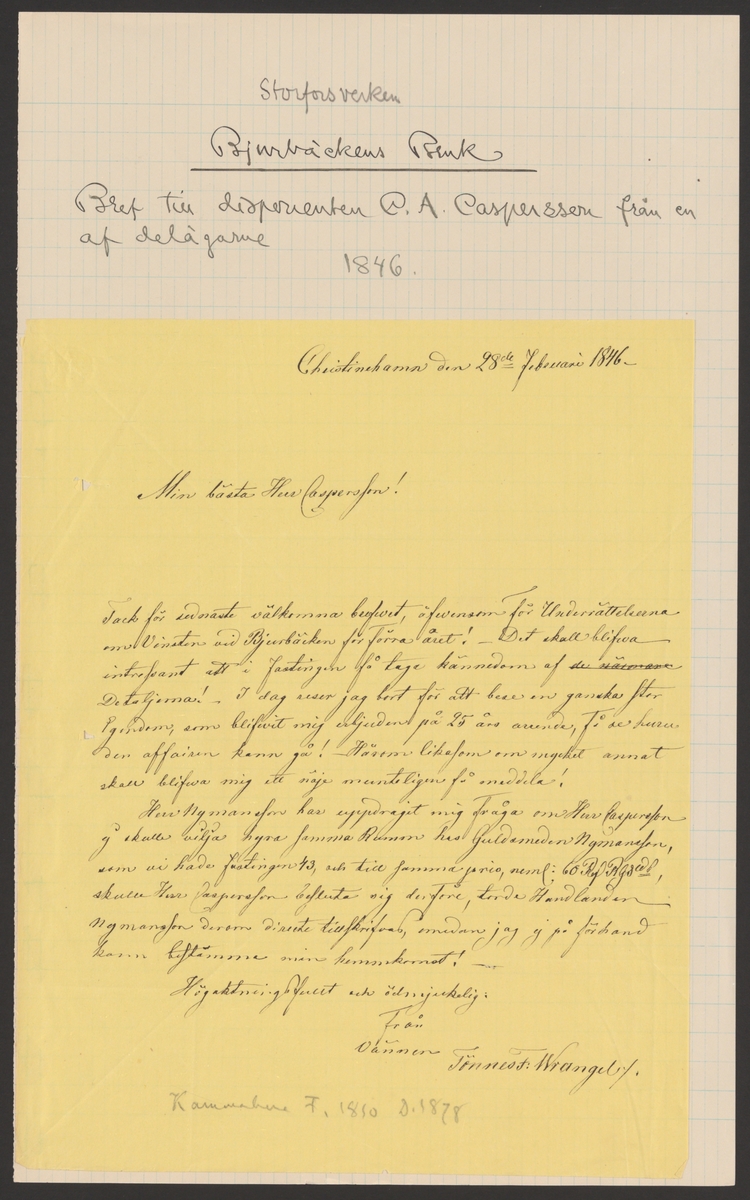 Storforsverken
Bjurbäckens Bruk
Bref till disponenten C. A. Caspersson från en
af delägarne
1846.
Christinehamn den 28de Februari 1846
Min bästa Herr Caspersson!
Tack för sednaste välkomna brefwet, äfwensom för Underrättelserna
om Vinsten vid Bjurbäcken för förra året! – Det skall blifwa
intressant att i Fastingen få tage kännedom af de närmare
Detaljerna! – I dag reser jag bort för att bese en ganska stor
Egendom, som blifwit mig erbjuden på 25 års arende, Få se huru
den affairen kann gå! – Härom likasom om mycket annat
skall blifwa mig ett nöje munteligen få meddela!
Herr Nymansson har uppdraget mig fråga om Herr Caspersson
ej skulle vilja hyra samma Rumm hos Guldsmeden Nymansson,
som vi hade fastingen 43, och till samma pris, neml: 60 Rd Rgds,
skulle Herr Caspersson besluta sig derföre, torde Handlanden
Nymansson derom directe tillskrifvas, emedan jag ej på förhand
kann bestämma min hemmkomst! –
Högaktningsfullt och ödmjukelig:
Från
Vännen
Tönnes F: Wrangel /.
Kammarherre F. 1810 D. 1878